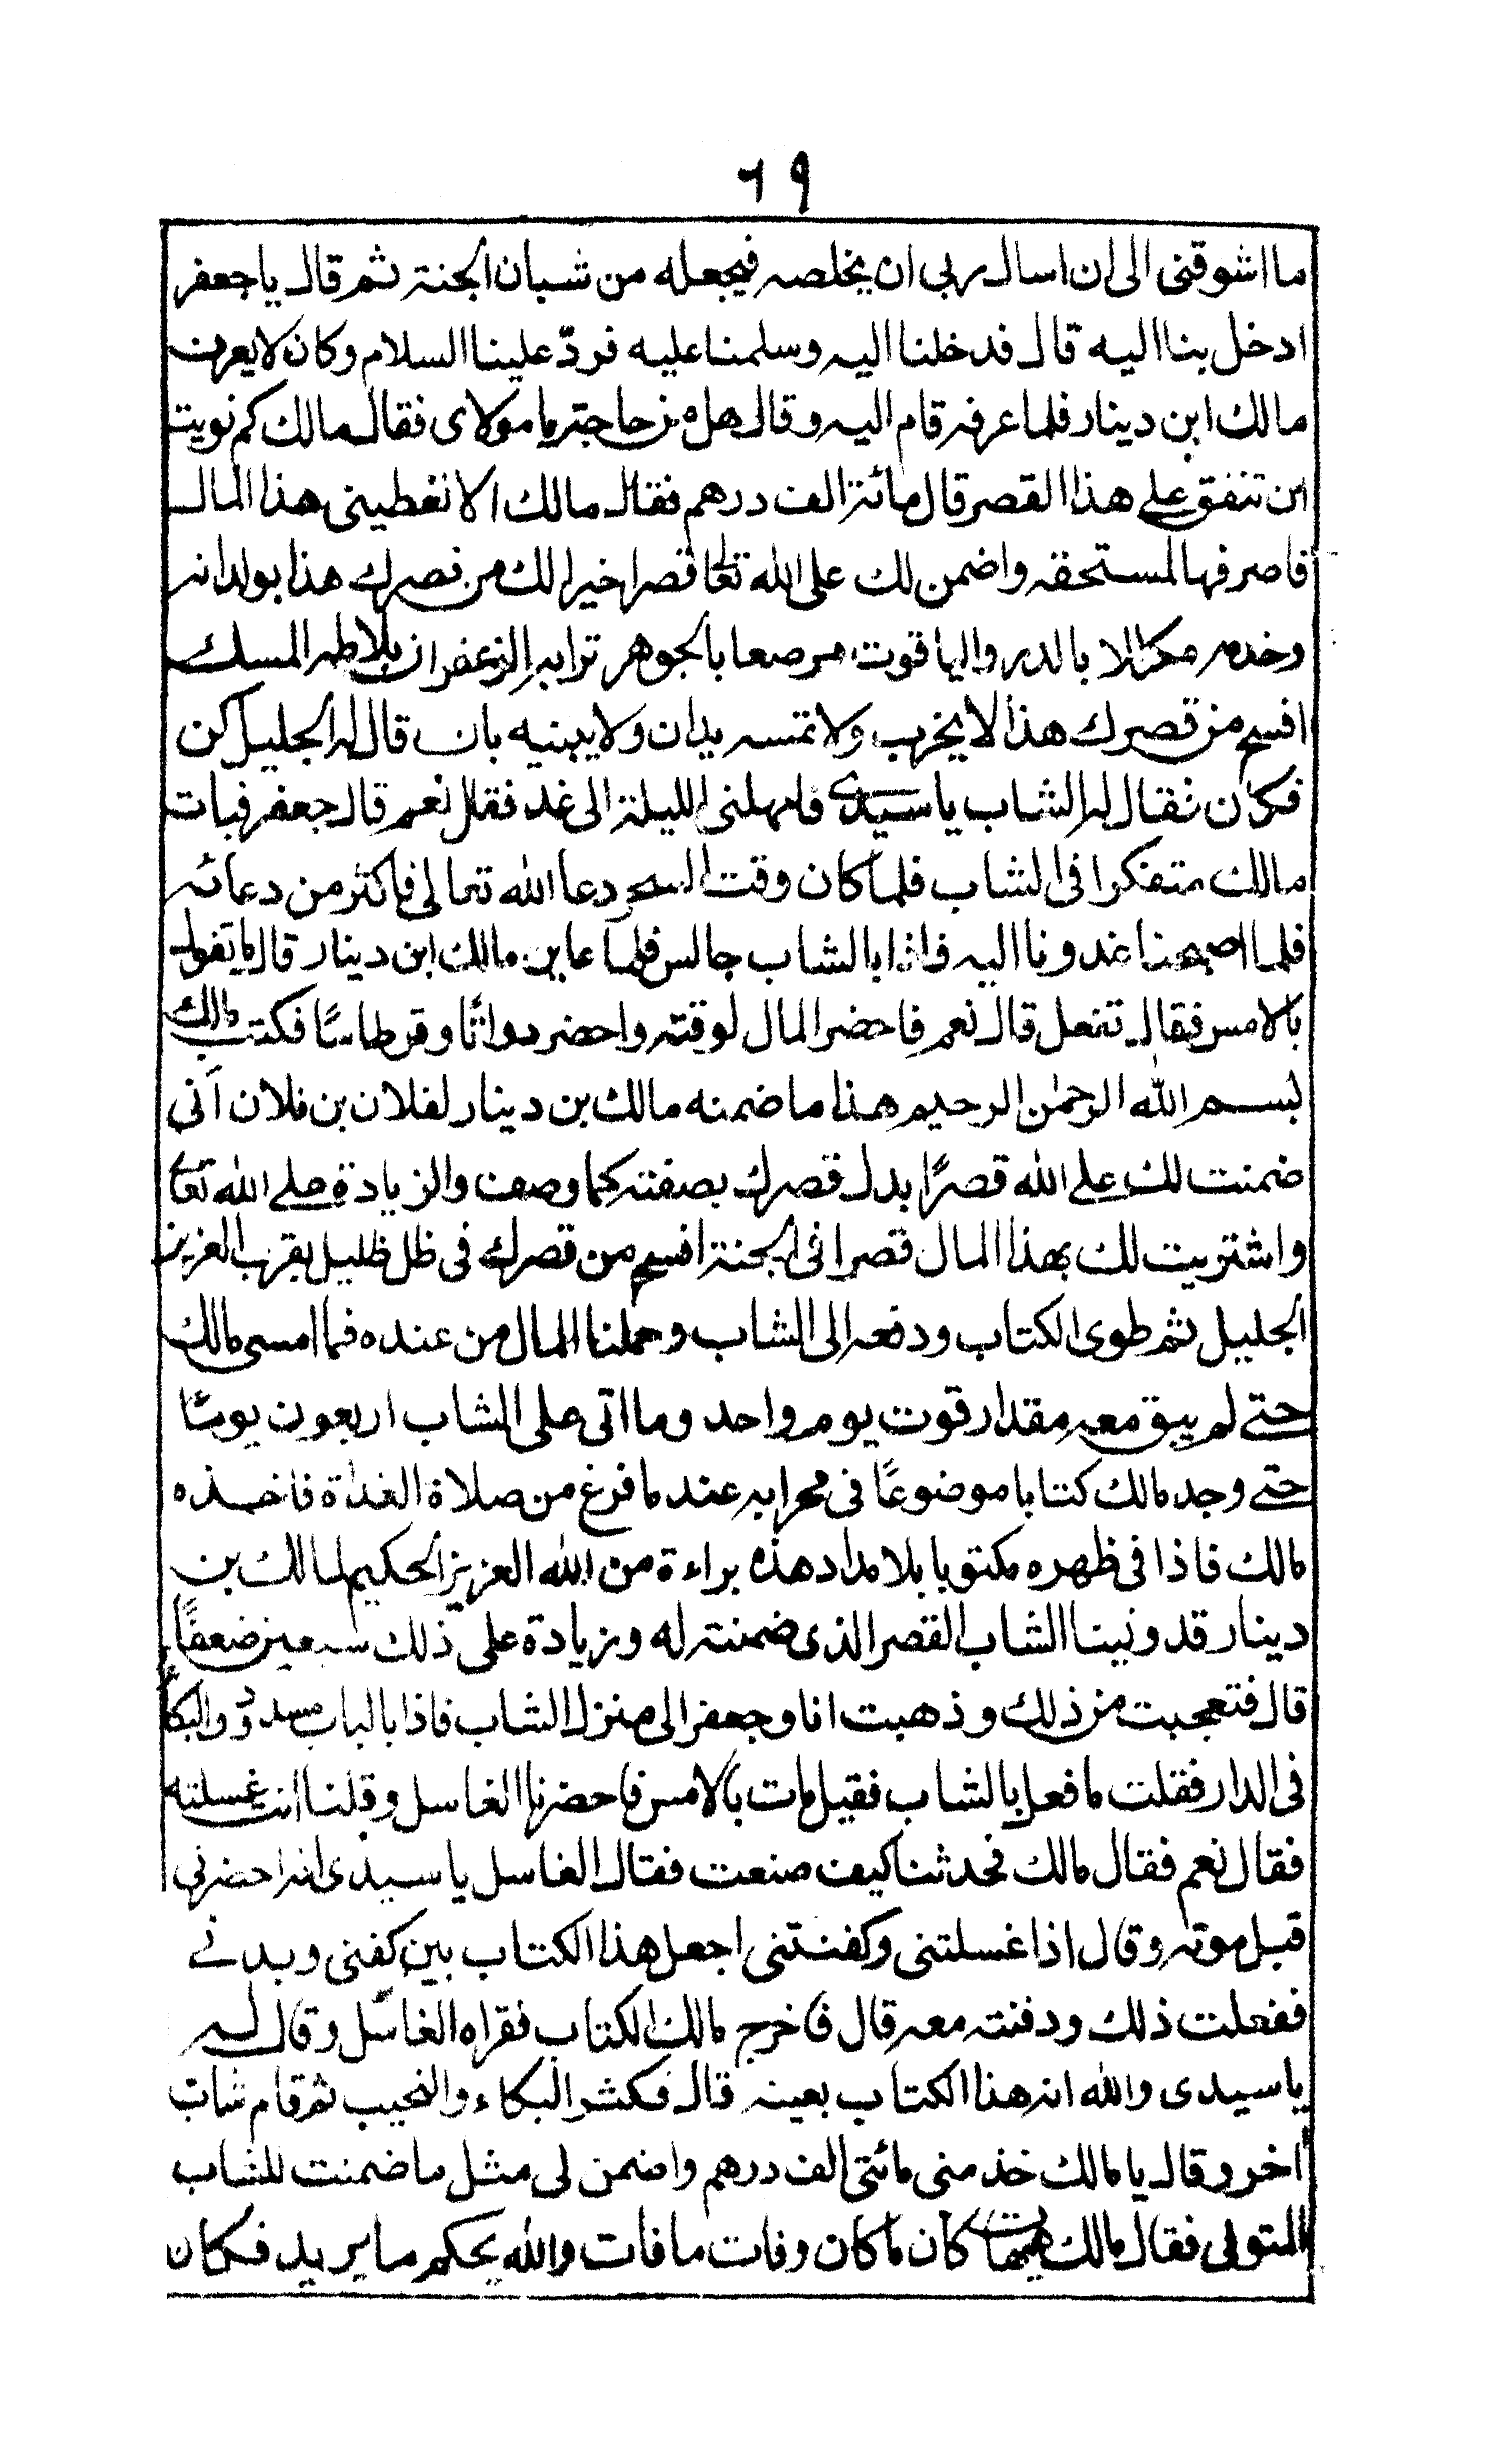 ٦٩
ما اشوقنى الى ان اسال ربى ان يخلصه فيجعله من شبان الجنة ثم قال يا جعفر
ادخل بنا اليه قال فدخلنا اليه وسلمنا عليه فردّ علينا السلام وكان لا يعرف
مالك ابن دينار فلما عرفه قام اليه وقال هل من حاجة يا مولاى فقال مالك كم نويت
ان تنفق على هذا القصر قال مائة الف درهم فقال مالك الا تعطينى هذا المال
فاصرفها لمستحقه واضمن لك على الله تعالى قصرا خيرا لك من قصرك هذا بولدانه
وخدمه مكللا بالدر والياقوت مرصعا بالجوهر ترابه الزعفران بلاطه المسك
افسح من قصرك هذا لا يخرب ولا تمسه يدان ولا يبنيه بان قال له الجليل كن
فكان فقال له الشاب يا سيدى فامهلنى الليلة الى غد فقال نعم قال جعفر فبات
مالك متفكرا فى الشاب فلما كان وقت السحر دعا الله تعالى فاكثر من دعائه
فلما اصبحنا غدونا اليه فاذا بالشاب جالس فلما عاين مالك ابن دينار قال ما تقول
بالامس فقال تفعل قال نعم فاحضر المال لوقته واحضر دواتًا وقرطاسًا فكتب مالك
بسم الله الرحمٰن الرحيم هذا ما ضمنه مالك بن دينار لفلان بن فلان انى
ضمنت لك على الله قصرًا بدل قصرك بصفته كما وصفت والزيادة على الله تعالى
واشتريت لك بهذا المال قصرا فى الجنة افسح من قصرك فى ظل ظليل بقرب العزيز
الجليل ثم طوى الكتاب ودفعه الى الشاب وحملنا المال من عنده فما امسى مالك
حتى لم يبق معه مقدار قوت يوم واحد وما اتى على الشاب اربعون يومًا
حتى وجد مالك كتابا موضوعًا فى محرابه عند ما فرغ من صلاة الغداة فاخذه
مالك فاذا فى ظهره مكتوبا بلا مداد هذه براءة من الله العزيز الحكيم لمالك بن
دينار قد وفينا الشاب القصر الذى ضمنته له وزيادة على ذلك سبعين ضعفًا
قال فتعجبت من ذلك وذهبت انا وجعفر الى منزل الشاب فاذا بالباب مسدود والبكاء
فى الدار فقلت ما فعل بالشاب فقيل مات بالامس فاحضرنا الغاسل وقلنا انت غسلته
فقال نعم فقال مالك فحدثنا كيف صنعت فقال الغاسل يا سيدى انه احضرنى
قبل موته وقال اذا غسلتنى وكفنتنى اجعل هذا الكتاب بين كفنى وبدنى
ففعلت ذلك ودفنته معه قال فاخرج مالك الكتاب فقراه الغاسل وقال له
يا سيدى والله انه هذا الكتاب بعينه قال فكثر البكاء والنحيب ثم قام شاب
اخر وقال يا مالك خذ منى مائتى الف درهم واضمن لى مثل ما ضمنت للشاب
المتوفى فقال مالك هيهات كان ما كان وفات ما فات والله يحكم ما يريد فكان